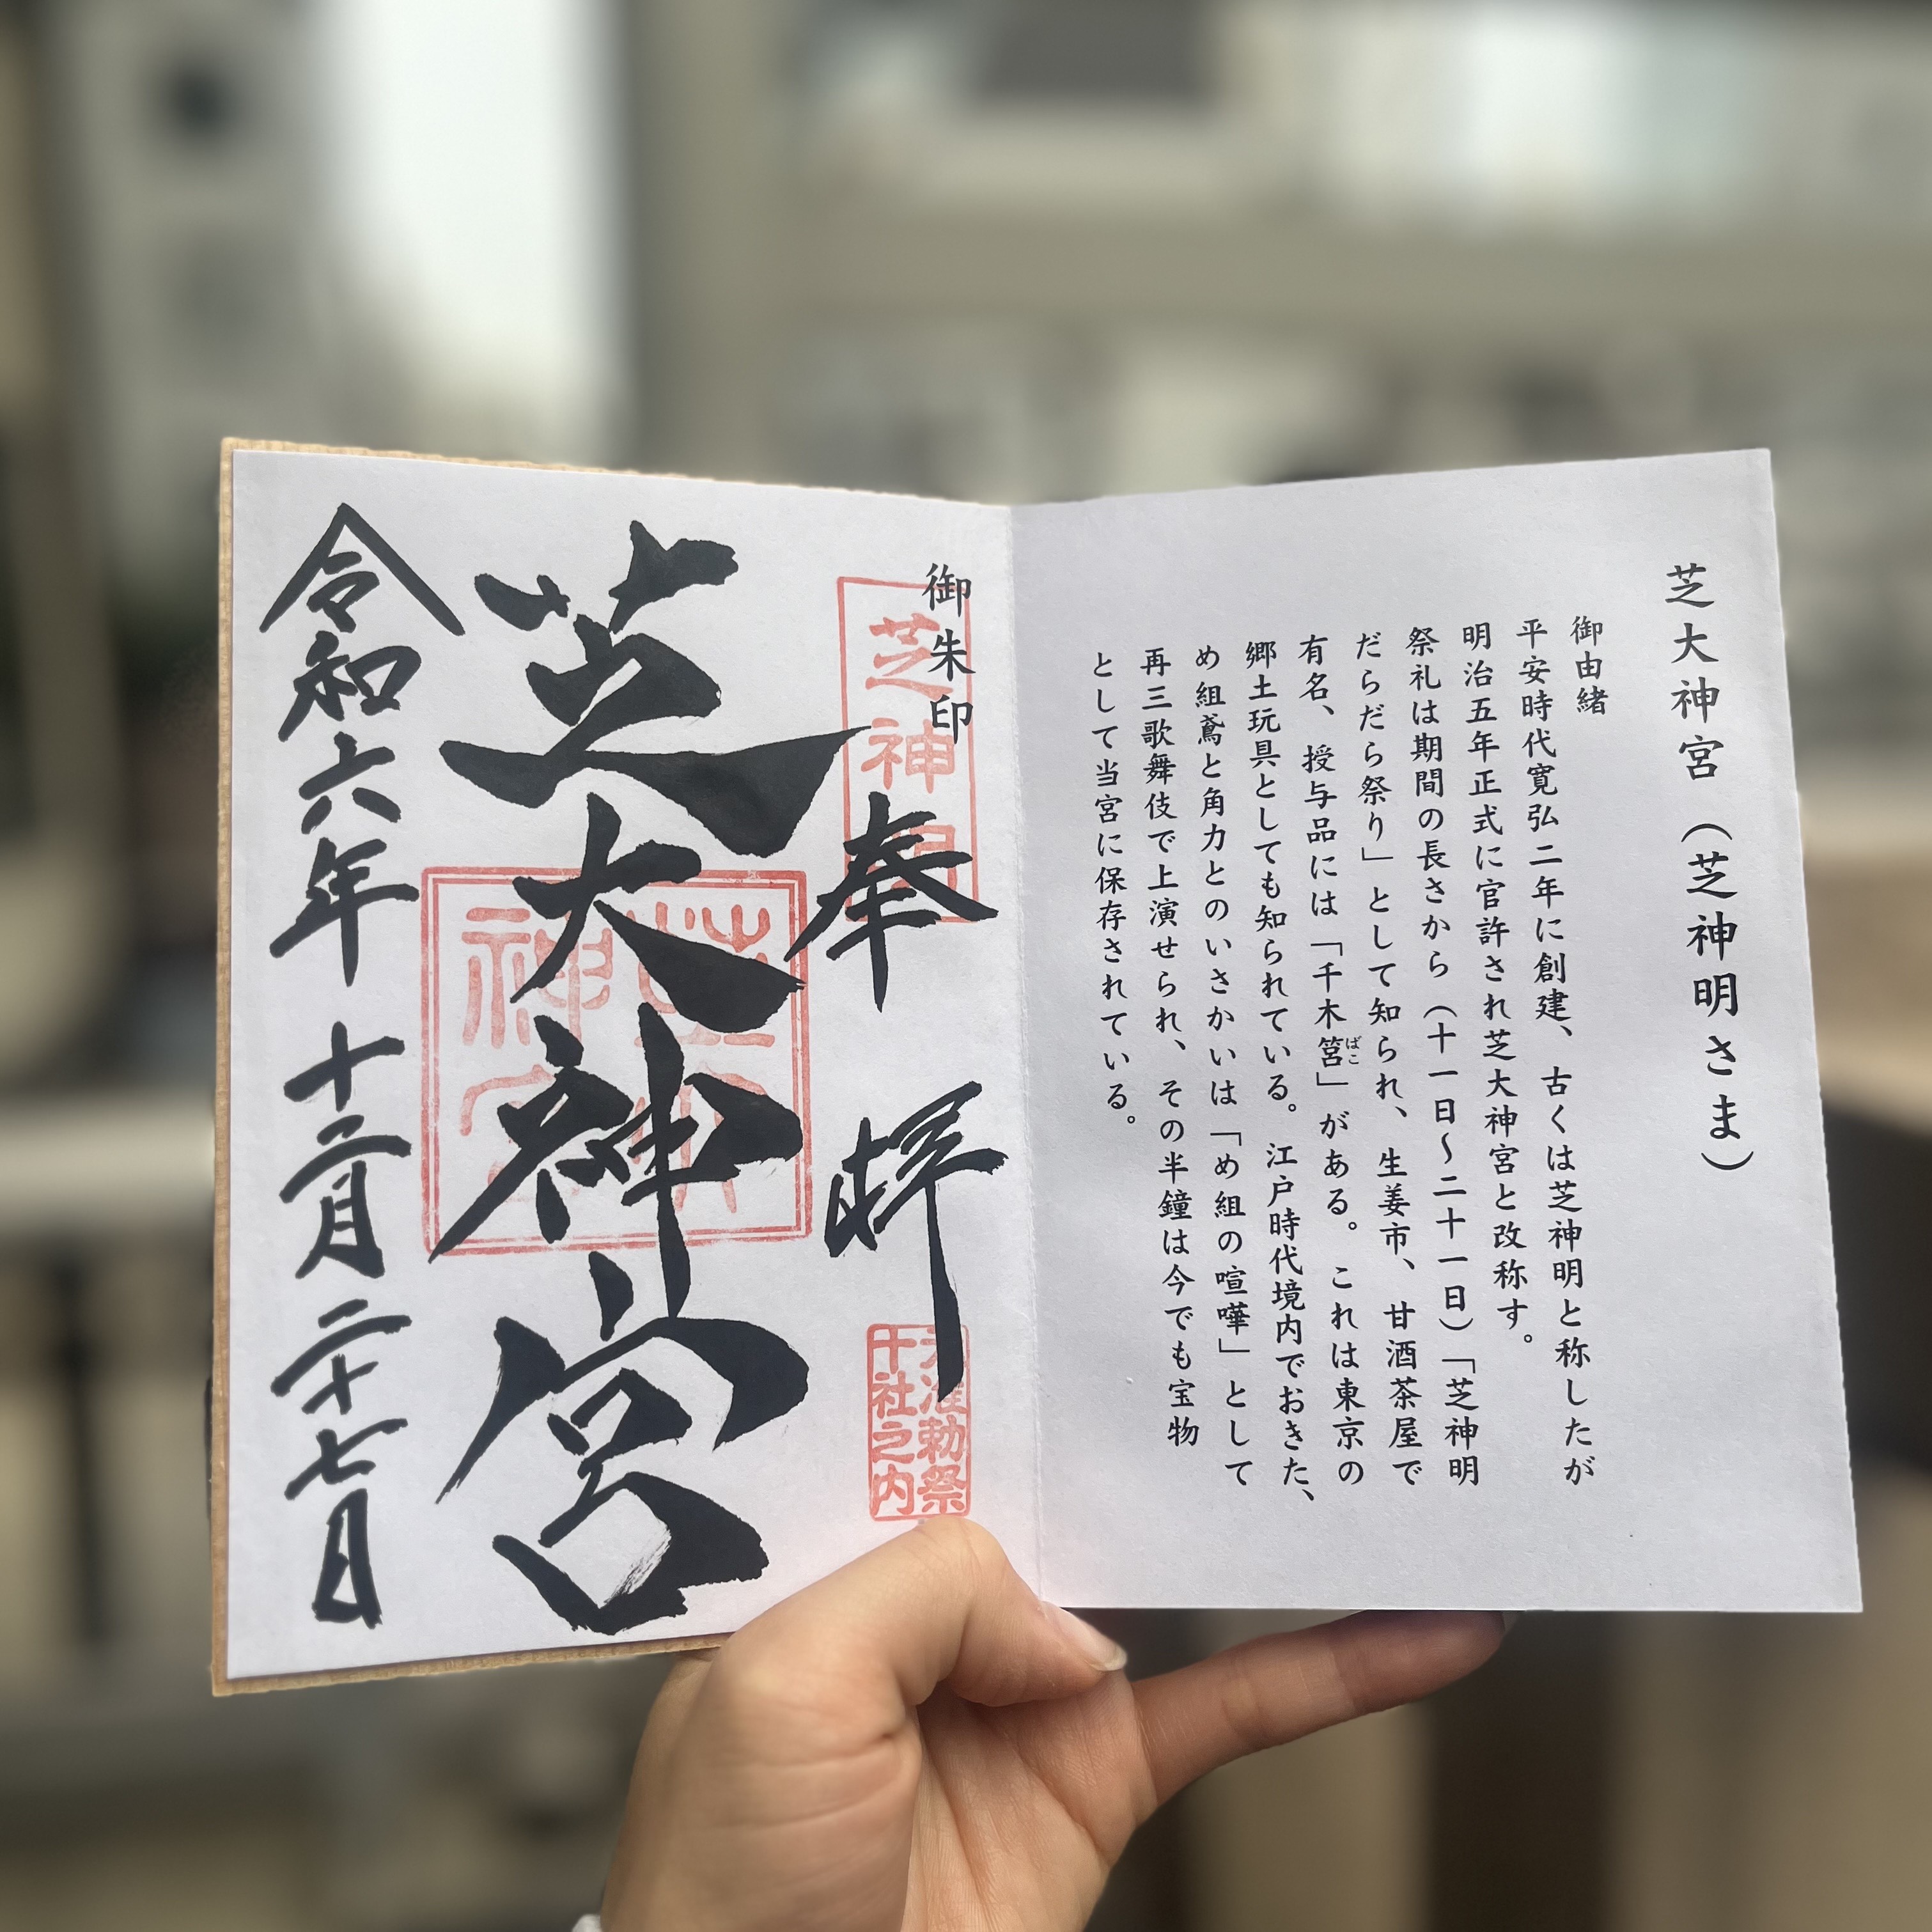 芝大神宮（芝神明さま）
御由緒
平安時代寛弘二年に創建、古くは芝神明と称したが
明治五年正式に官許され芝大神宮と改称す。
祭礼は期間の長さから（十一日～二十一日）「芝神明
だらだら祭り」として知られ、生姜市、甘酒茶屋で
有名、授与品には「千木筥」がある。これは東京の
ばこ
郷土玩具としても知られている。江戸時代境内でおきた、
め組鳶と角力とのいさかいは「め組の喧嘩」として
再三歌舞伎で上演せられ、その半鐘は今でも宝物
として当宮に保存されている。
御朱印
芝神明
奉拝
准勅祭
十社之内
芝大神宮
令和六年十二月二十七日